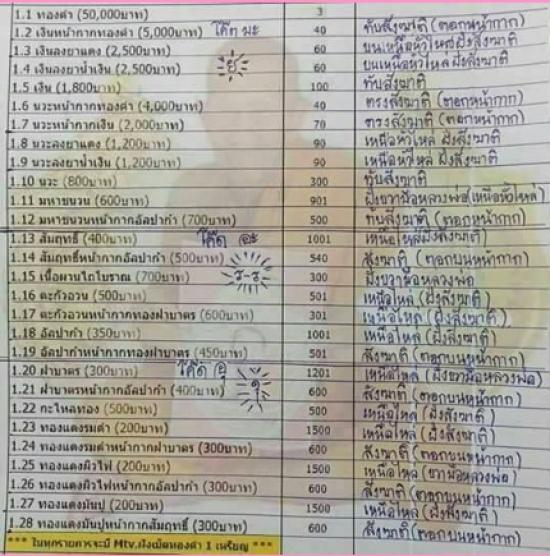 1.1 ทองคำ (50,000บาท) 3 ทับสังฆาฏิ (ตอกหน้ากาก)
1.2 เงินหน้ากากทองคำ (5,000บาท) โค๊ด มะ 40
1.3 เงินลงยาแดง (2,500บาท) 60 บนเหนือหัวไหล่ฝั่งสังฆาฏิ
1.4 เงินลงยาน้ำเงิน (2,500บาท) 60 บนเหนือหัวไหล่ฝั่งสังฆาฏิ
1.5 เงิน (1,800บาท) 100 ทับสังฆาฏิ
1.6 นวะหน้ากากทองคำ (4,000บาท) 40 ตรงสังฆาฏิ (ตอกหน้ากาก)
1.7 นวะหน้ากากเงิน (2,000บาท) 70 ตรงสังฆาฏิ (ตอกหน้ากาก)
1.8 นวะลงยาแดง (1,200บาท) 90 เหนือหัวไหล่ ฝั่งสังฆาฏิ
1.9 นวะลงยาน้ำเงิน (1,200บาท) 90 เหนือหัวไหล่ ฝั่งสังฆาฏิ
1.10 นวะ (800บาท) 300 ทับสังฆาฏิ
1.11 มหาชนวน (600บาท) 901 ฝั่งขวามือหลวงพ่อ (เหนือหัวไหล่)
1.12 มหาชนวนหน้ากากอัลปาก้า (700บาท) 500 ทับสังฆาฏิ (ตอกหน้ากาก)
1.13 สัมฤทธิ์ (400บาท) โค๊ด อะ 1001 เหนือไหล่ฝั่งสังฆาฏิ
1.14 สัมฤทธิ์หน้ากากอัลปาก้า (500บาท) 540 สังฆาฏิ (ตอกบนหน้ากาก)
1.15 เนื้อผานไถโบราณ (700บาท) 300 ฝั่งขวามือหลวงพ่อ
1.16 ตะกั่วอวน (500บาท) 501 เหนือไหล่ (ฝั่งสังฆาฏิ)
1.17 ตะกั่วอวนหน้ากากทองฝาบาตร (600บาท) 301 เหนือไหล่ (ฝั่งสังฆาฏิ)
1.18 อัลปาก้า (350บาท) 1001 เหนือไหล่ (ฝั่งสังฆาฏิ)
1.19 อัลปาก้าหน้ากากทองฝาบาตร (450บาท) 501 สังฆาฏิ (ตอกบนหน้ากาก)
1.20 ฝาบาตร (300บาท) โค๊ด อุ 1201 เหนือไหล่ (ฝั่งขวามือหลวงพ่อ)
1.21 ฝาบาตรหน้ากากอัลปาก้า (400บาท) 600 สังฆาฏิ (ตอกบนหน้ากาก)
1.22 กะไหล่ทอง (500บาท) 500 เหนือไหล่ (ฝั่งสังฆาฏิ)
1.23 ทองแดงรมดำ (200บาท) 1500 เหนือไหล่ (ฝั่งสังฆาฏิ)
1.24 ทองแดงรมดำหน้ากากฝาบาตร (300บาท) 600 สังฆาฏิ (ตอกบนหน้ากาก)
1.25 ทองแดงผิวไฟ (200บาท) 1500 เหนือไหล่ (ขวามือหลวงพ่อ)
1.26 ทองแดงผิวไฟหน้ากากอัลปาก้า (300บาท) 600 สังฆาฏิ (ตอกบนหน้ากาก)
1.27 ทองแดงมันปู (200บาท) 1500 เหนือไหล่ (ฝั่งสังฆาฏิ)
1.28 ทองแดงมันปูหน้ากากสัมฤทธิ์ (300บาท) 600 สังฆาฏิ (ตอกบนหน้ากาก)
*** ในทุกรายการจะมี Mtv.ฝังเม็ดทองคำ 1 เหรียญ ***